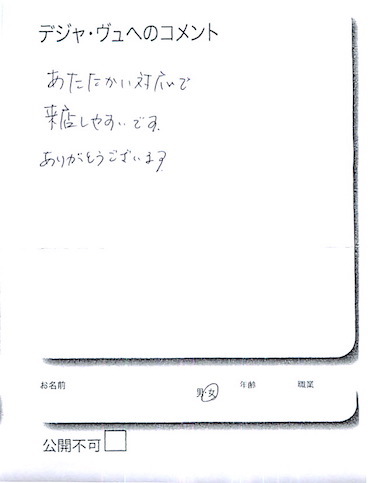 デジャ・ヴュへのコメント
あたたかい対応で
来店しやすいです。
ありがとうございます
お名前 男・女 年齢 職業
公開不可